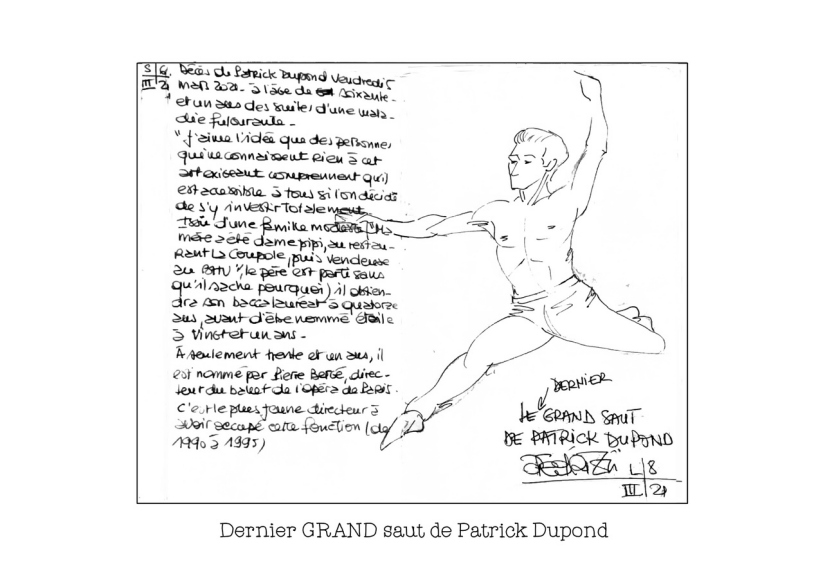 S 6. Décès de Patrick Dupond Vendredi 5
III 21 mars 2021. à l'âge de soixante-
et un ans des suites d'une mala-
die fulgurante.
"J'aime l'idée que des personnes
qui ne connaissent rien à cet
art exigeant comprennent qu'il
est accessible à tous si l'on décide
de s'y investir Totalement
Issu d'une famille modeste ("Ma
mère a été dame pipi, au restau-
rant La Coupole, puis vendeuse
au BHV", le père est parti sans
qu'il sache pourquoi) il obtien-
dra son baccalauréat à quatorze
ans, avant d'être nommé étoile
à vingt et un ans.
À seulement trente et un ans, il
est nommé par Pierre Bergé, direc-
teur du ballet de l'Opéra de Paris.
C'est le plus jeune directeur à
avoir occupé cette fonction (de
1990 à 1995)
DERNIER
LE GRAND SAUT
DE PATRICK DUPOND
L 8
III 21
Dernier GRAND saut de Patrick Dupond